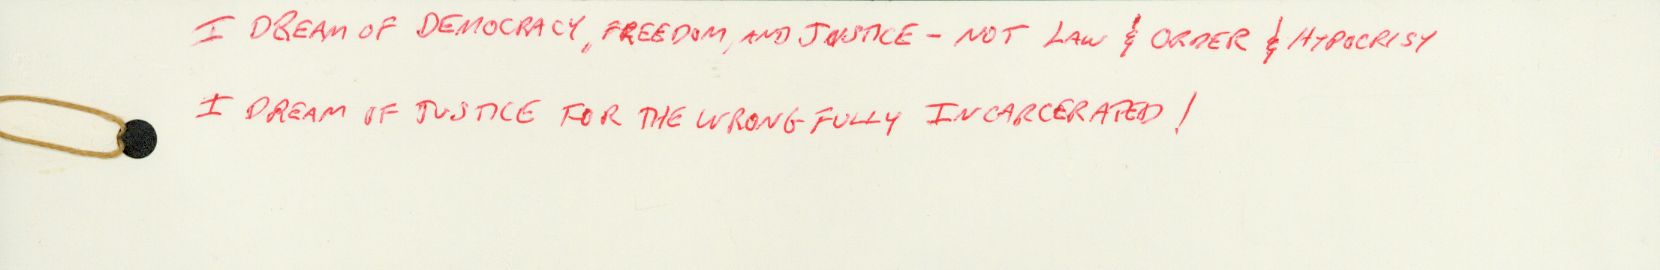 I DREAM OF DEMOCRACY, FREEDOM, AND JUSTICE - NOT LAW & ORDER & HYPOCRISY
I DREAM OF JUSTICE FOR THE WRONGFULLY INCARCERATED!